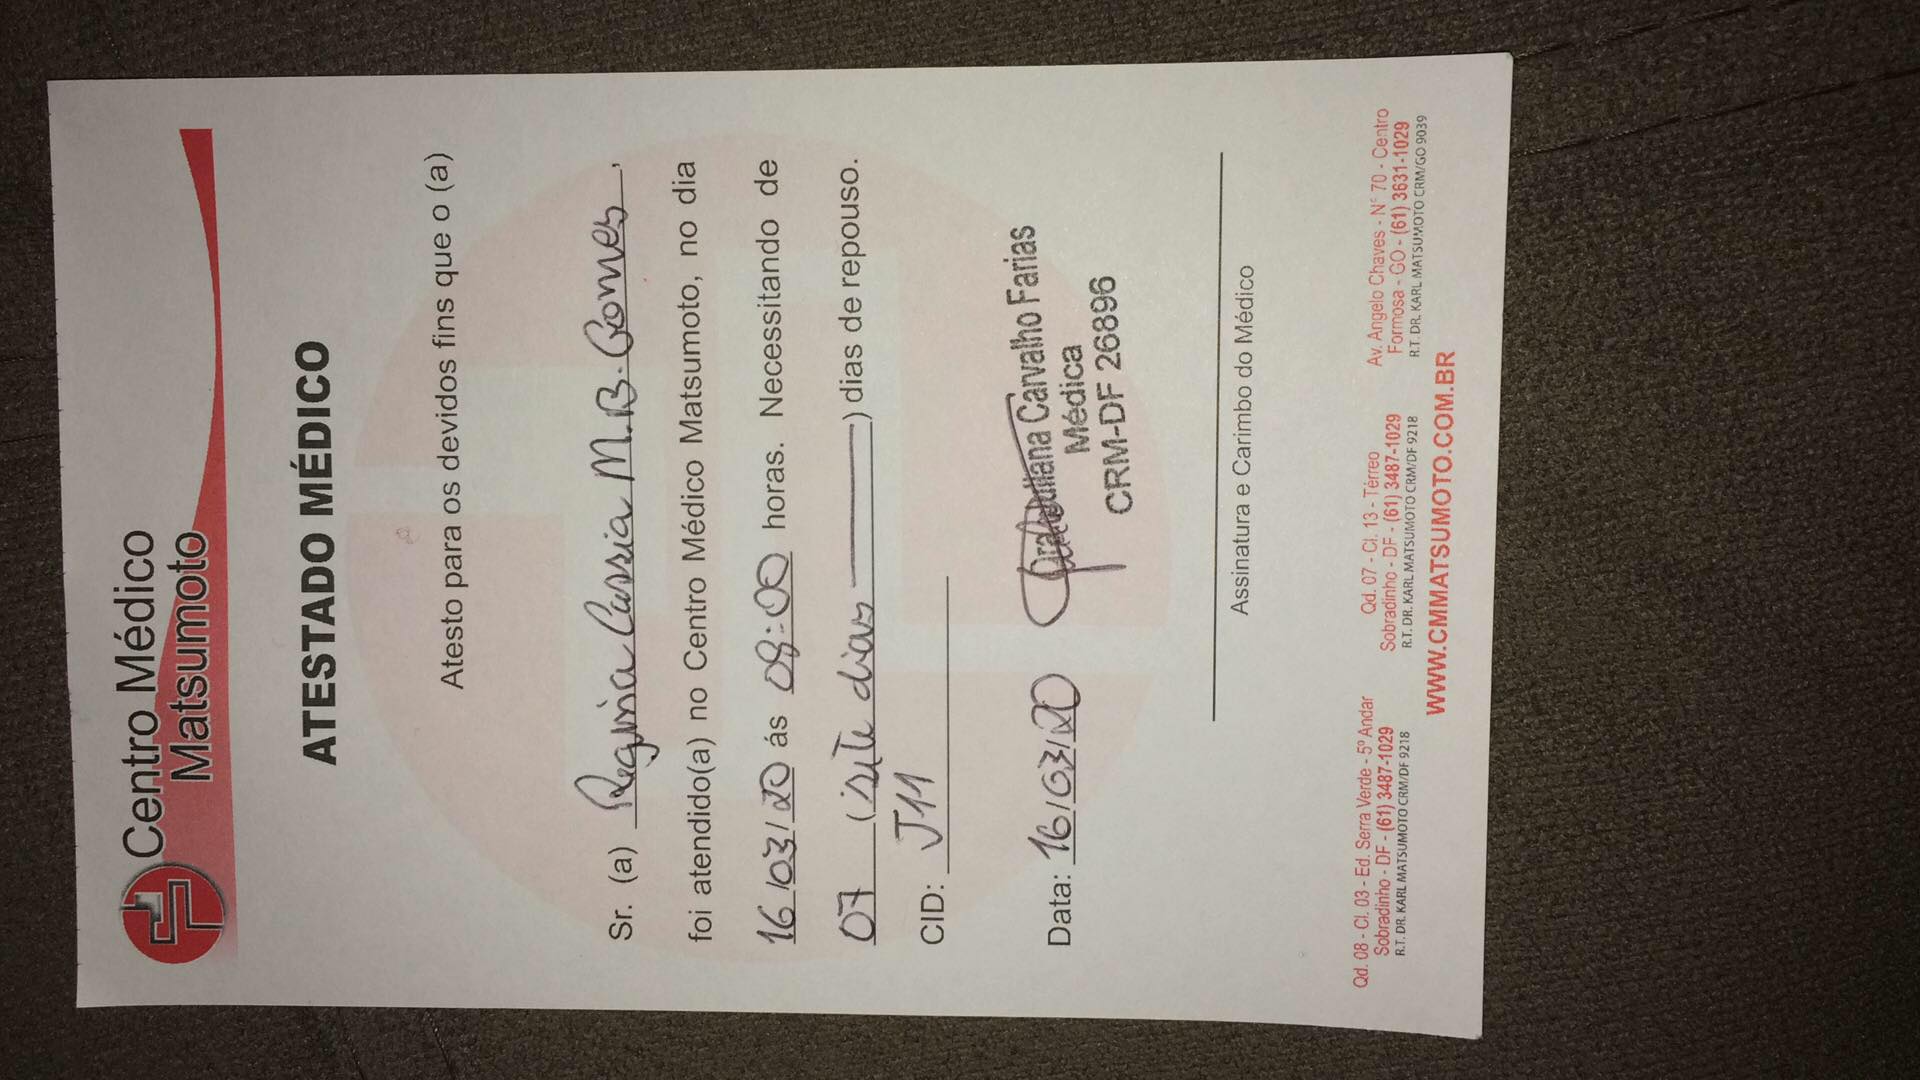 Centro Médico
Matsumoto
ATESTADO MÉDICO
Atesto para os devidos fins que o (a)
Sr. (a) Regina Cassia M.B. Gomes,
foi atendido(a) no Centro Médico Matsumoto, no dia
16/03/20 ás 08:00 horas. Necessitando de
07 (sete dias) dias de repouso.
CID: J11
Data: 16/03/20
Juliana Carvalho Farias
Médica
CRM-DF 26896
Assinatura e Carimbo do Médico
Qd. 08 - Cl. 03 - Ed. Serra Verde - 5º Andar
Sobradinho - DF - (61) 3487-1029
R.T. DR. KARL MATSUMOTO CRM/DF 9218
Qd. 07 - Cl. 13 - Térreo
Sobradinho - DF - (61) 3487-1029
R.T. DR. KARL MATSUMOTO CRM/DF 9218
Av. Angelo Chaves - N° 70 - Centro
Formosa - GO - (61) 3631-1029
R.T. DR. KARL MATSUMOTO CRM/GO 9039
WWW.CMMATSUMOTO.COM.BR